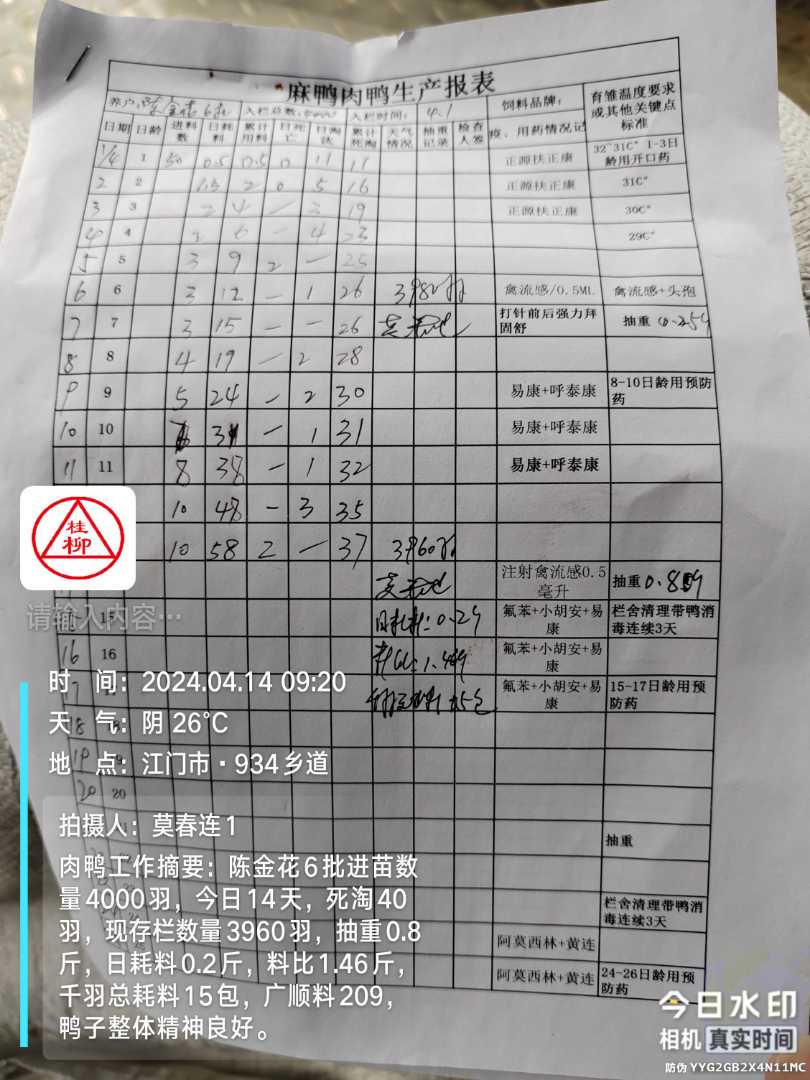 麻鸭肉鸭生产报表
养户: 陈金花6批 入栏总数: 入栏时间: 4.1 饲料品牌: 育雏温度要求或其他关键点标准
日期 日龄 进料数 日耗料 累计用料 日死亡 日淘汰 累计死淘 天气情况 抽重记录 检查人签 疫、用药情况记
1/4 1 50 0.5 0.5 0 11 11 正源扶正康 32~31C° 1-3日龄用开口药
2 2 1.5 2 0 5 16 正源扶正康 31C°
3 3 2 4 - 3 19 正源扶正康 30C°
4 4 2 6 - 4 23 29C°
5 5 3 9 2 - 25
6 6 3 12 - 1 26 3982羽 禽流感/0.5ML 禽流感+头孢
7 7 3 15 - - 26 打针前后强力拜固舒 抽重
8 8 4 19 - 2 28
9 9 5 24 - 2 30 易康+呼泰康 8-10日龄用预防药
10 10 31 - 1 31 易康+呼泰康
11 11 8 38 - 1 32 易康+呼泰康
10 48 - 3 35
10 58 2 - 37 3960羽
注射禽流感0.5毫升 抽重
15 日耗料: 0.2斤 氟苯+小胡安+易康 栏舍清理带鸭消毒连续3天
16 16 氟苯+小胡安+易康
氟苯+小胡安+易康 15-17日龄用预防药
18
19
20 20
抽重
栏舍清理带鸭消毒连续3天
阿莫西林+黄连
阿莫西林+黄连 24-26日龄用预防药
桂柳
请输入内容…
时 间: 2024.04.14 09:20
天 气: 阴 26℃
地 点: 江门市·934乡道
拍摄人: 莫春连1
肉鸭工作摘要: 陈金花6批进苗数
量4000羽，今日14天，死淘40
羽，现存栏数量3960羽，抽重0.8
斤，日耗料0.2斤，料比1.46斤，
千羽总耗料15包，广顺料209，
鸭子整体精神良好。
今日水印
相机 真实时间
防伪 YYG2GB2X4N11MC